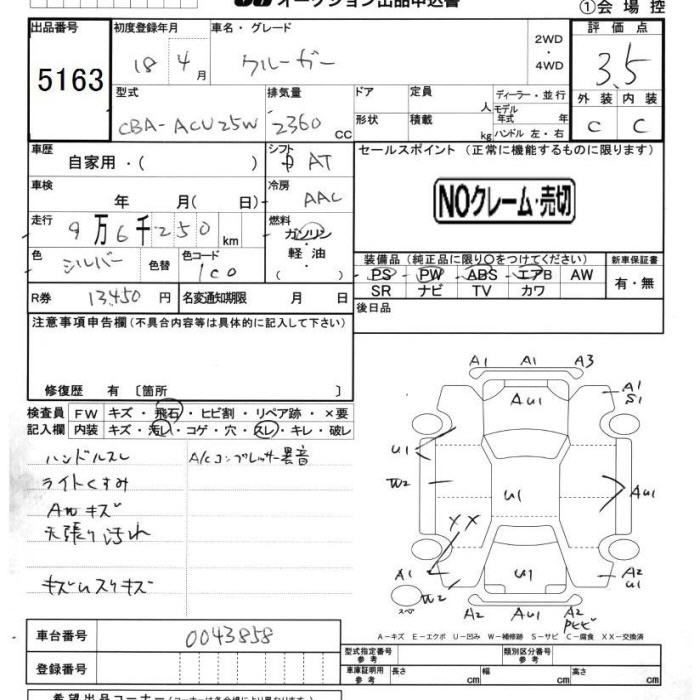 オークション出品申込書
①会場控
出品番号
5163
初度登録年月
18 4月
車名・グレード
クルーガー
2WD
・
4WD
評価点
3.5
外装 内装
C C
型式
CBA-ACU25W
排気量
2360 CC
ドア
形状
定員
人
積載
kg
ディーラー・並行
モデル年式 年
ハンドル 左・右
車歴
自家用・( )
シフト
AT
車検
年 月( 日)
冷房
AAC
走行
9万6千250km
燃料
ガソリン
・
軽油
( )
色
シルバー
色替
色コード
1C0
R券 13450円
名変通知期限 月 日
セールスポイント (正常に機能するものに限ります)
NOクレーム・売切
装備品 (純正品に限り○をつけてください)
PS PW ABS エアB AW
SR ナビ TV カワ
新車保証書
有・無
後日品
注意事項申告欄(不具合内容等は具体的に記入して下さい)
修復歴 有 〔箇所 〕
検査員記入欄
FW キズ・飛石・ヒビ割・リペア跡・×要
内装 キズ・汚れ・コゲ・穴・スレ・キレ・破レ
ハンドルスレ
A/Cコンプレッサー異音
ライトくすみ
AWキズ
天張り汚れ
A1 A1 A3
AU1
A1
S1
U1
W2
U1
AU1
XX
A1
W2
U1
A2
U1
スペ
A2 AU1 A2
A-キズ E-エクボ U-凹み W-補修跡 S-サビ C-腐食 XX-交換済
車台番号
0043858
登録番号
型式指定番号
参考
類別区分番号
参考
車庫証明用
参考
長さ cm
幅 cm
高さ cm
希望出品コーナー